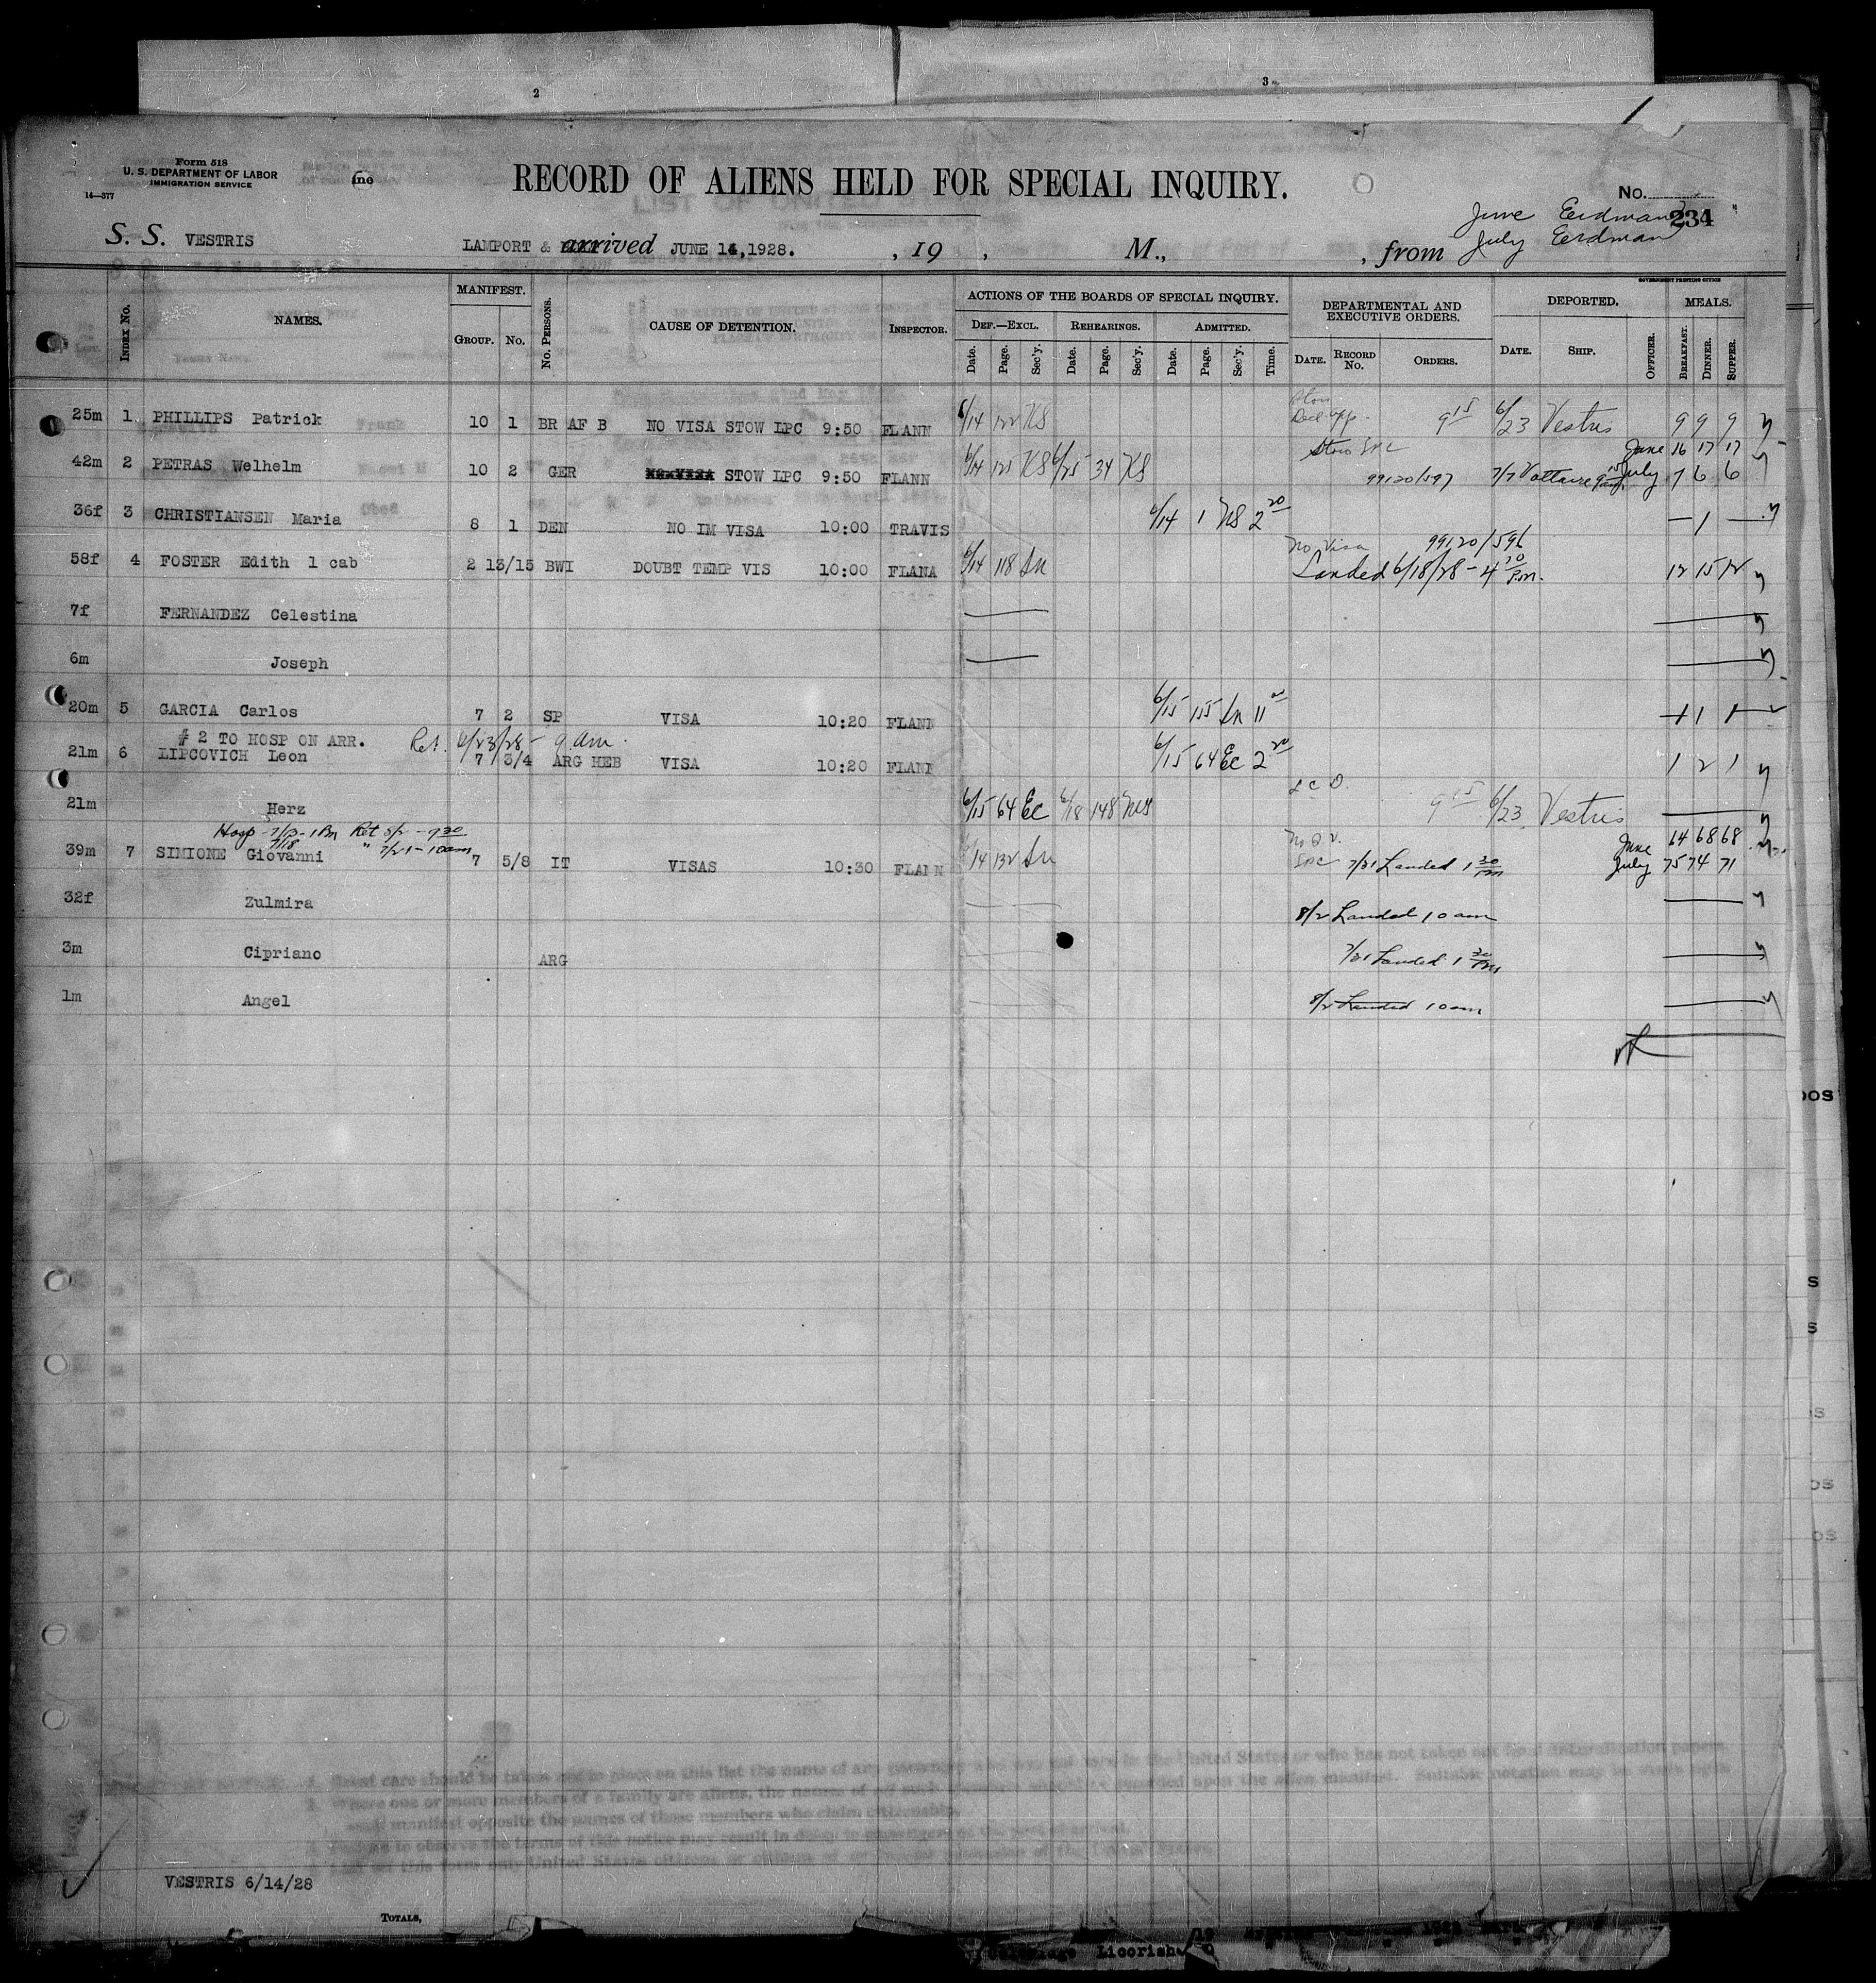 2
3
Form 518
U. S. DEPARTMENT OF LABOR
IMMIGRATION SERVICE
14—377
RECORD OF ALIENS HELD FOR SPECIAL INQUIRY.
No.
234
June Eerdman
July Eerdman
S. S. VESTRIS LAMPORT & arrived JUNE 14,1928. , 19 , M., , from
GOVERNMENT PRINTING OFFICE
INDEX NO. NAMES. MANIFEST. GROUP. NO. NO. PERSONS. CAUSE OF DETENTION. INSPECTOR. ACTIONS OF THE BOARDS OF SPECIAL INQUIRY. DEPARTMENTAL AND EXECUTIVE ORDERS. DEPORTED. MEALS.
DEF.—EXCL. REHEARINGS. ADMITTED.
Date. Page. Sec'y. Date. Page. Sec'y. Date. Page. Sec'y. Time. DATE. RECORD NO. ORDERS. DATE. SHIP. OFFICER. BREAKFAST. DINNER. SUPPER.
25m 1 PHILLIPS Patrick 10 1 BR AF B NO VISA STOW LPC 9:50 FLANN 6/14 122 KS 9 15 6/23 Vestris 9 9 9
Stow LPC June 16 17 17
42m 2 PETRAS Welhelm 10 2 GER NO VISA STOW LPC 9:50 FLANN 6/14 125 KS 6/25 34 KS 99120/597 7/7 Voltaire July 7 6 6
36f 3 CHRISTIANSEN Maria 8 1 DEN NO IM VISA 10:00 TRAVIS 6/14 1 NS 2 20 — 1 —
No Visa 99120/596
58f 4 FOSTER Edith 1 cab 2 13/15 BWI DOUBT TEMP VIS 10:00 FLANA 6/14 118 Ln Landed 6/18/28 - 4 30 P.m. 12 15 12
7f FERNANDEZ Celestina
6m Joseph
20m 5 GARCIA Carlos 7 2 SP VISA 10:20 FLANN 6/15 155 Ln 11 00 1 1 1
# 2 TO HOSP ON ARR. Ret. 6/23/28 - 9 am.
21m 6 LIPCOVICH Leon 7 3/4 ARG HEB VISA 10:20 FLANN 6/15 64 Ec 2 20 1 2 1
21m Herz 6/15 64 Ec 6/18 148 9 15 6/23 Vestris
Hosp - 7/13 - 1 Pm Ret 8/2 - 9 30
7/18 " 7/21 - 10 am
June 64 68 68
39m 7 SIMIONE Giovanni 7 5/8 IT VISAS 10:30 FLANN 6/14 132 Ln LPC 7/31 Landed 1 30 Pm July 75 74 71
32f Zulmira 8/2 Landed 10 am
3m Cipriano ARG 7/31 Landed 1 30 Pm
1m Angel 8/2 Landed 10 am
VESTRIS 6/14/28
TOTALS,
Licorish